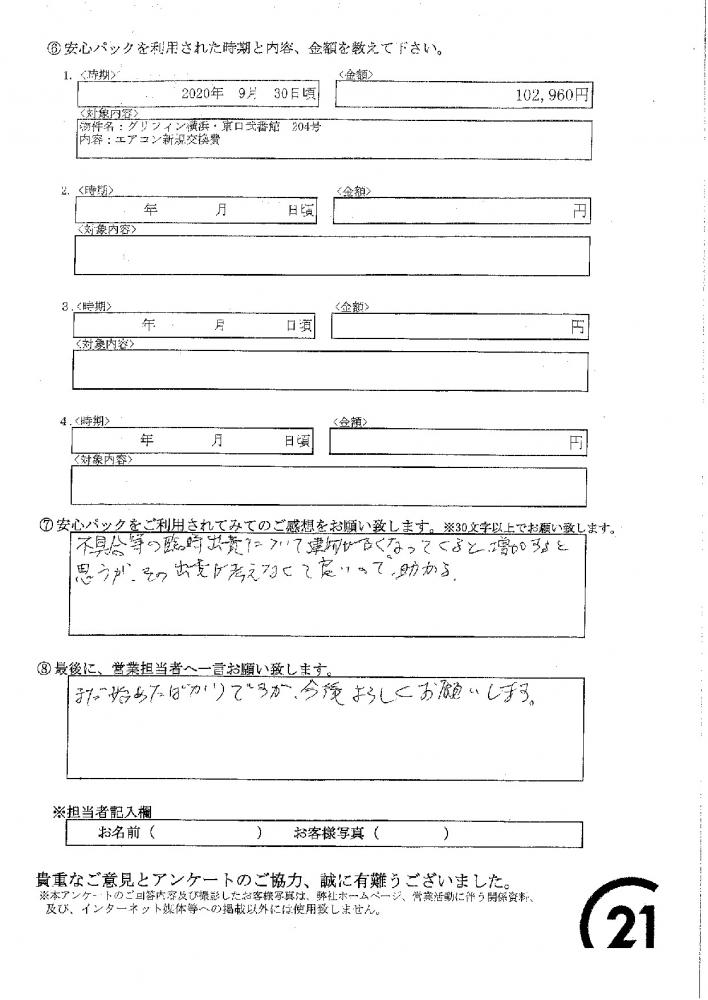 ⑥安心パックを利用された時期と内容、金額を教えて下さい。
1. <時期> <金額>
2020年 9月 30日頃 102,960円
<対象内容>
物件名：グリフィン横浜・東口弐番館 204号
内容：エアコン新規交換費
2. <時期> <金額>
年 月 日頃 円
<対象内容>
3. <時期> <金額>
年 月 日頃 円
<対象内容>
4. <時期> <金額>
年 月 日頃 円
<対象内容>
⑦安心パックをご利用されてみてのご感想をお願い致します。※30文字以上でお願い致します。
不具合等の臨時出費について建物が古くなってくると、増加すると
思うが、その出費が考えなくて良いので、助かる。
⑧最後に、営業担当者へ一言お願い致します。
まだ始めたばかりですが、今後よろしくお願いします。
※担当者記入欄
お名前（ ） お客様写真（ ）
貴重なご意見とアンケートのご協力、誠に有難うございました。
※本アンケートのご回答内容及び撮影したお客様写真は、弊社ホームページ、営業活動に伴う関係資料、
及び、インターネット媒体等への掲載以外には使用致しません。
21